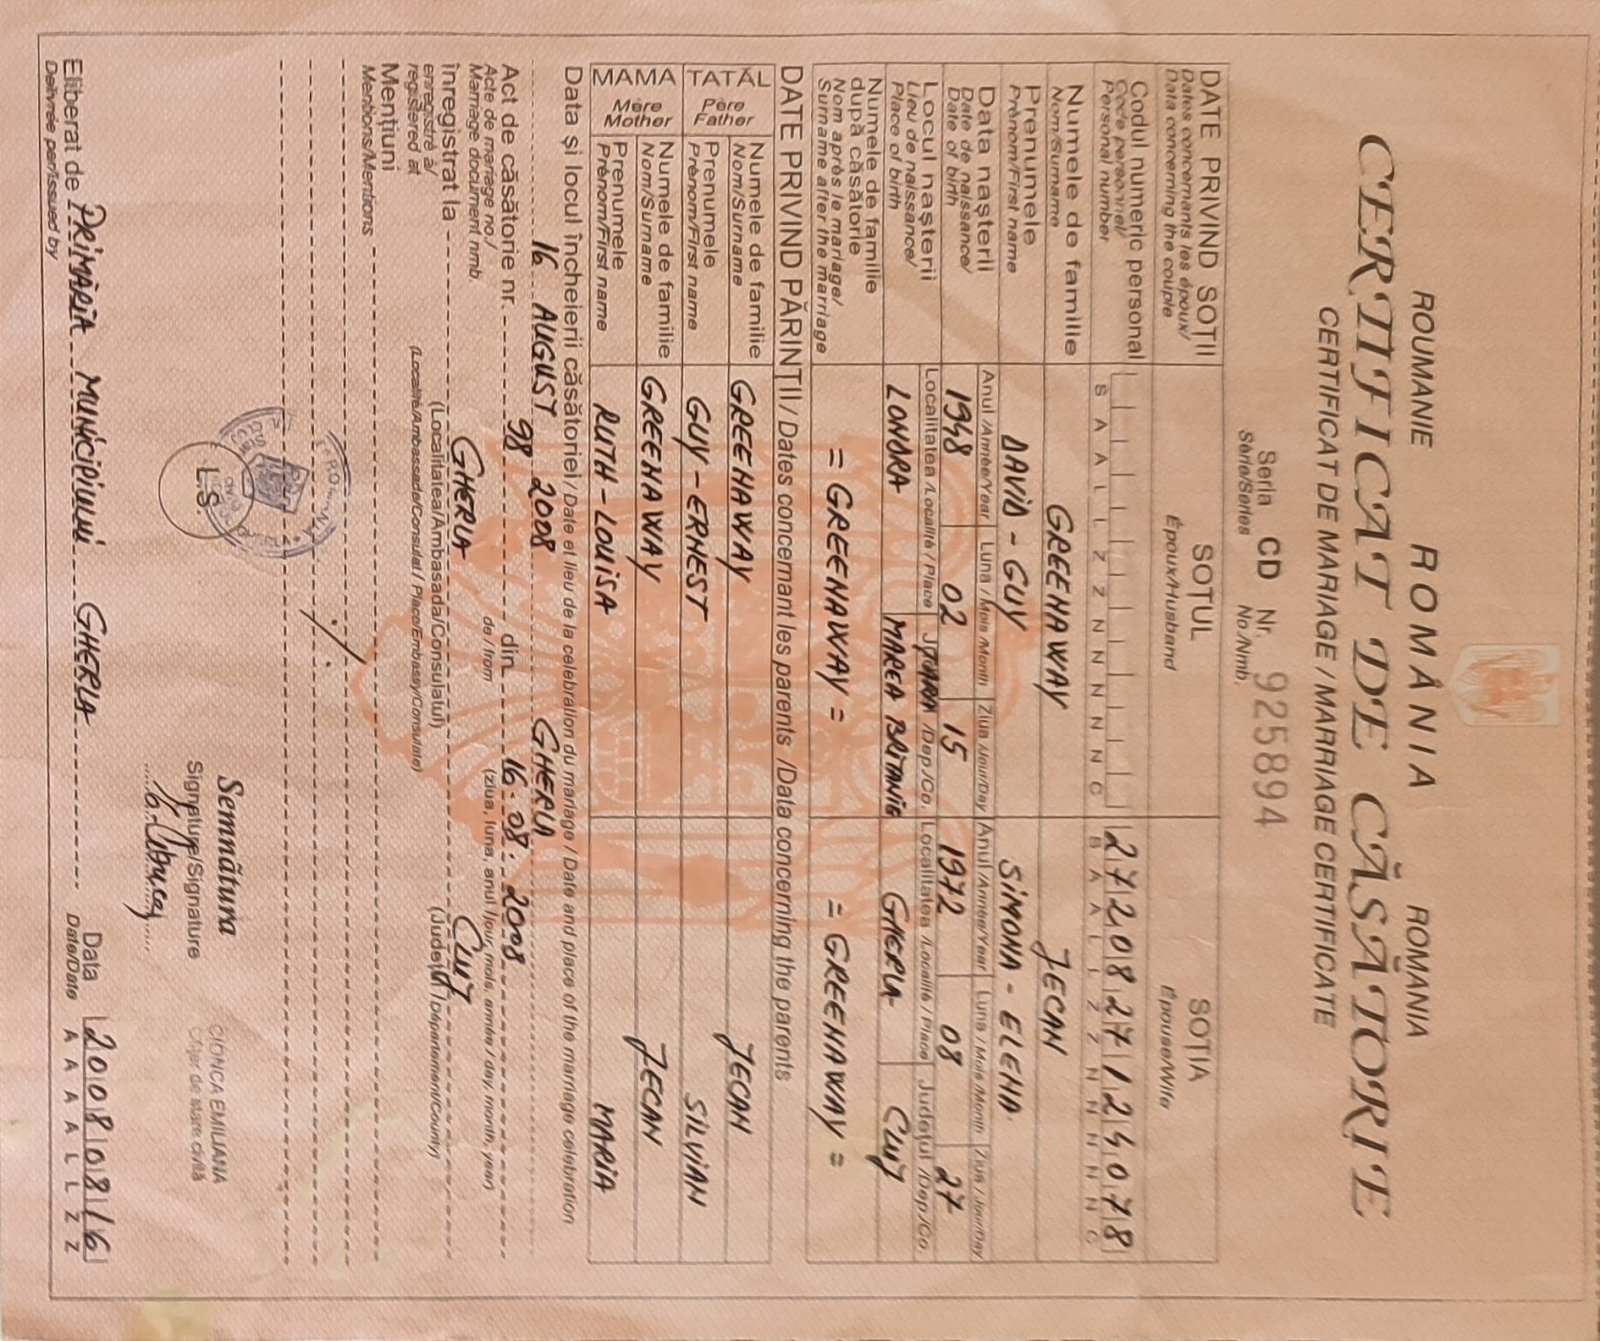 ROUMANIE ROMÂNIA ROMANIA
CERTIFICAT DE CĂSĂTORIE
CERTIFICAT DE MARIAGE / MARRIAGE CERTIFICATE
Seria CD Nr. 925894
Série/Series No./Nmb.
DATE PRIVIND SOȚII SOȚUL SOȚIA
Dates concernants les époux/ Époux/Husband Épouse/Wife
Data concerning the couple
Codul numeric personal 2720827124078
Code personnel/
Personal number S A A L L Z Z N N N N N C S A A L L Z Z N N N N N C
Numele de familie GREENAWAY JECAN
Nom/Surname
Prenumele DAVID-GUY SIMONA-ELENA
Prénom/First name
Data nașterii Anul/Année/Year Luna/Mois/Month Ziua/Jour/Day Anul/Année/Year Luna/Mois/Month Ziua/Jour/Day
Date de naissance/ 1948 02 15 1972 08 27
Date of birth
Locul nașterii Localitatea/Localité/Place ȚARA/Dep./Co. Localitatea/Localité/Place Județul/Dep./Co.
Lieu de naissance/ LONDRA MAREA BRITANIE GHERLA CLUJ
Place of birth
Numele de familie
după căsătorie = GREENAWAY = = GREENAWAY =
Nom après le mariage/
Surname after the marriage
DATE PRIVIND PĂRINȚII / Dates concernant les parents / Data concerning the parents
TATĂL Numele de familie GREENAWAY JECAN
Père Nom/Surname
Father Prenumele GUY-ERNEST SILVIAN
Prénom/First name
MAMA Numele de familie GREENAWAY JECAN
Mère Nom/Surname
Mother Prenumele RUTH-LOUISA MARIA
Prénom/First name
Data și locul încheierii căsătoriei / Date et lieu de la celebration du mariage / Date and place of the marriage celebration
16 AUGUST 2008 GHERLA
Act de căsătorie nr. 98 din 16.08.2008
Acte de mariage no./ de / from (ziua, luna, anul/jour, mois, année/day, month, year)
Marriage document nmb.
înregistrat la GHERLA CLUJ
enregistré à/ (Localitatea/Ambasada/Consulatul) (Județul/Département/County)
registered at (Localité/Ambassade/Consulat / Place/Embassy/Consulate)
Mențiuni
Mentions/Mentions
L.S
Semnătura
Signature/Signature
CIONCA EMILIANA
Ofițer de stare civilă
Eliberat de PRIMĂRIA MUNICIPIULUI GHERLA Data 20080816
Delivrée per/Issued by Date/Date A A A A L L Z Z